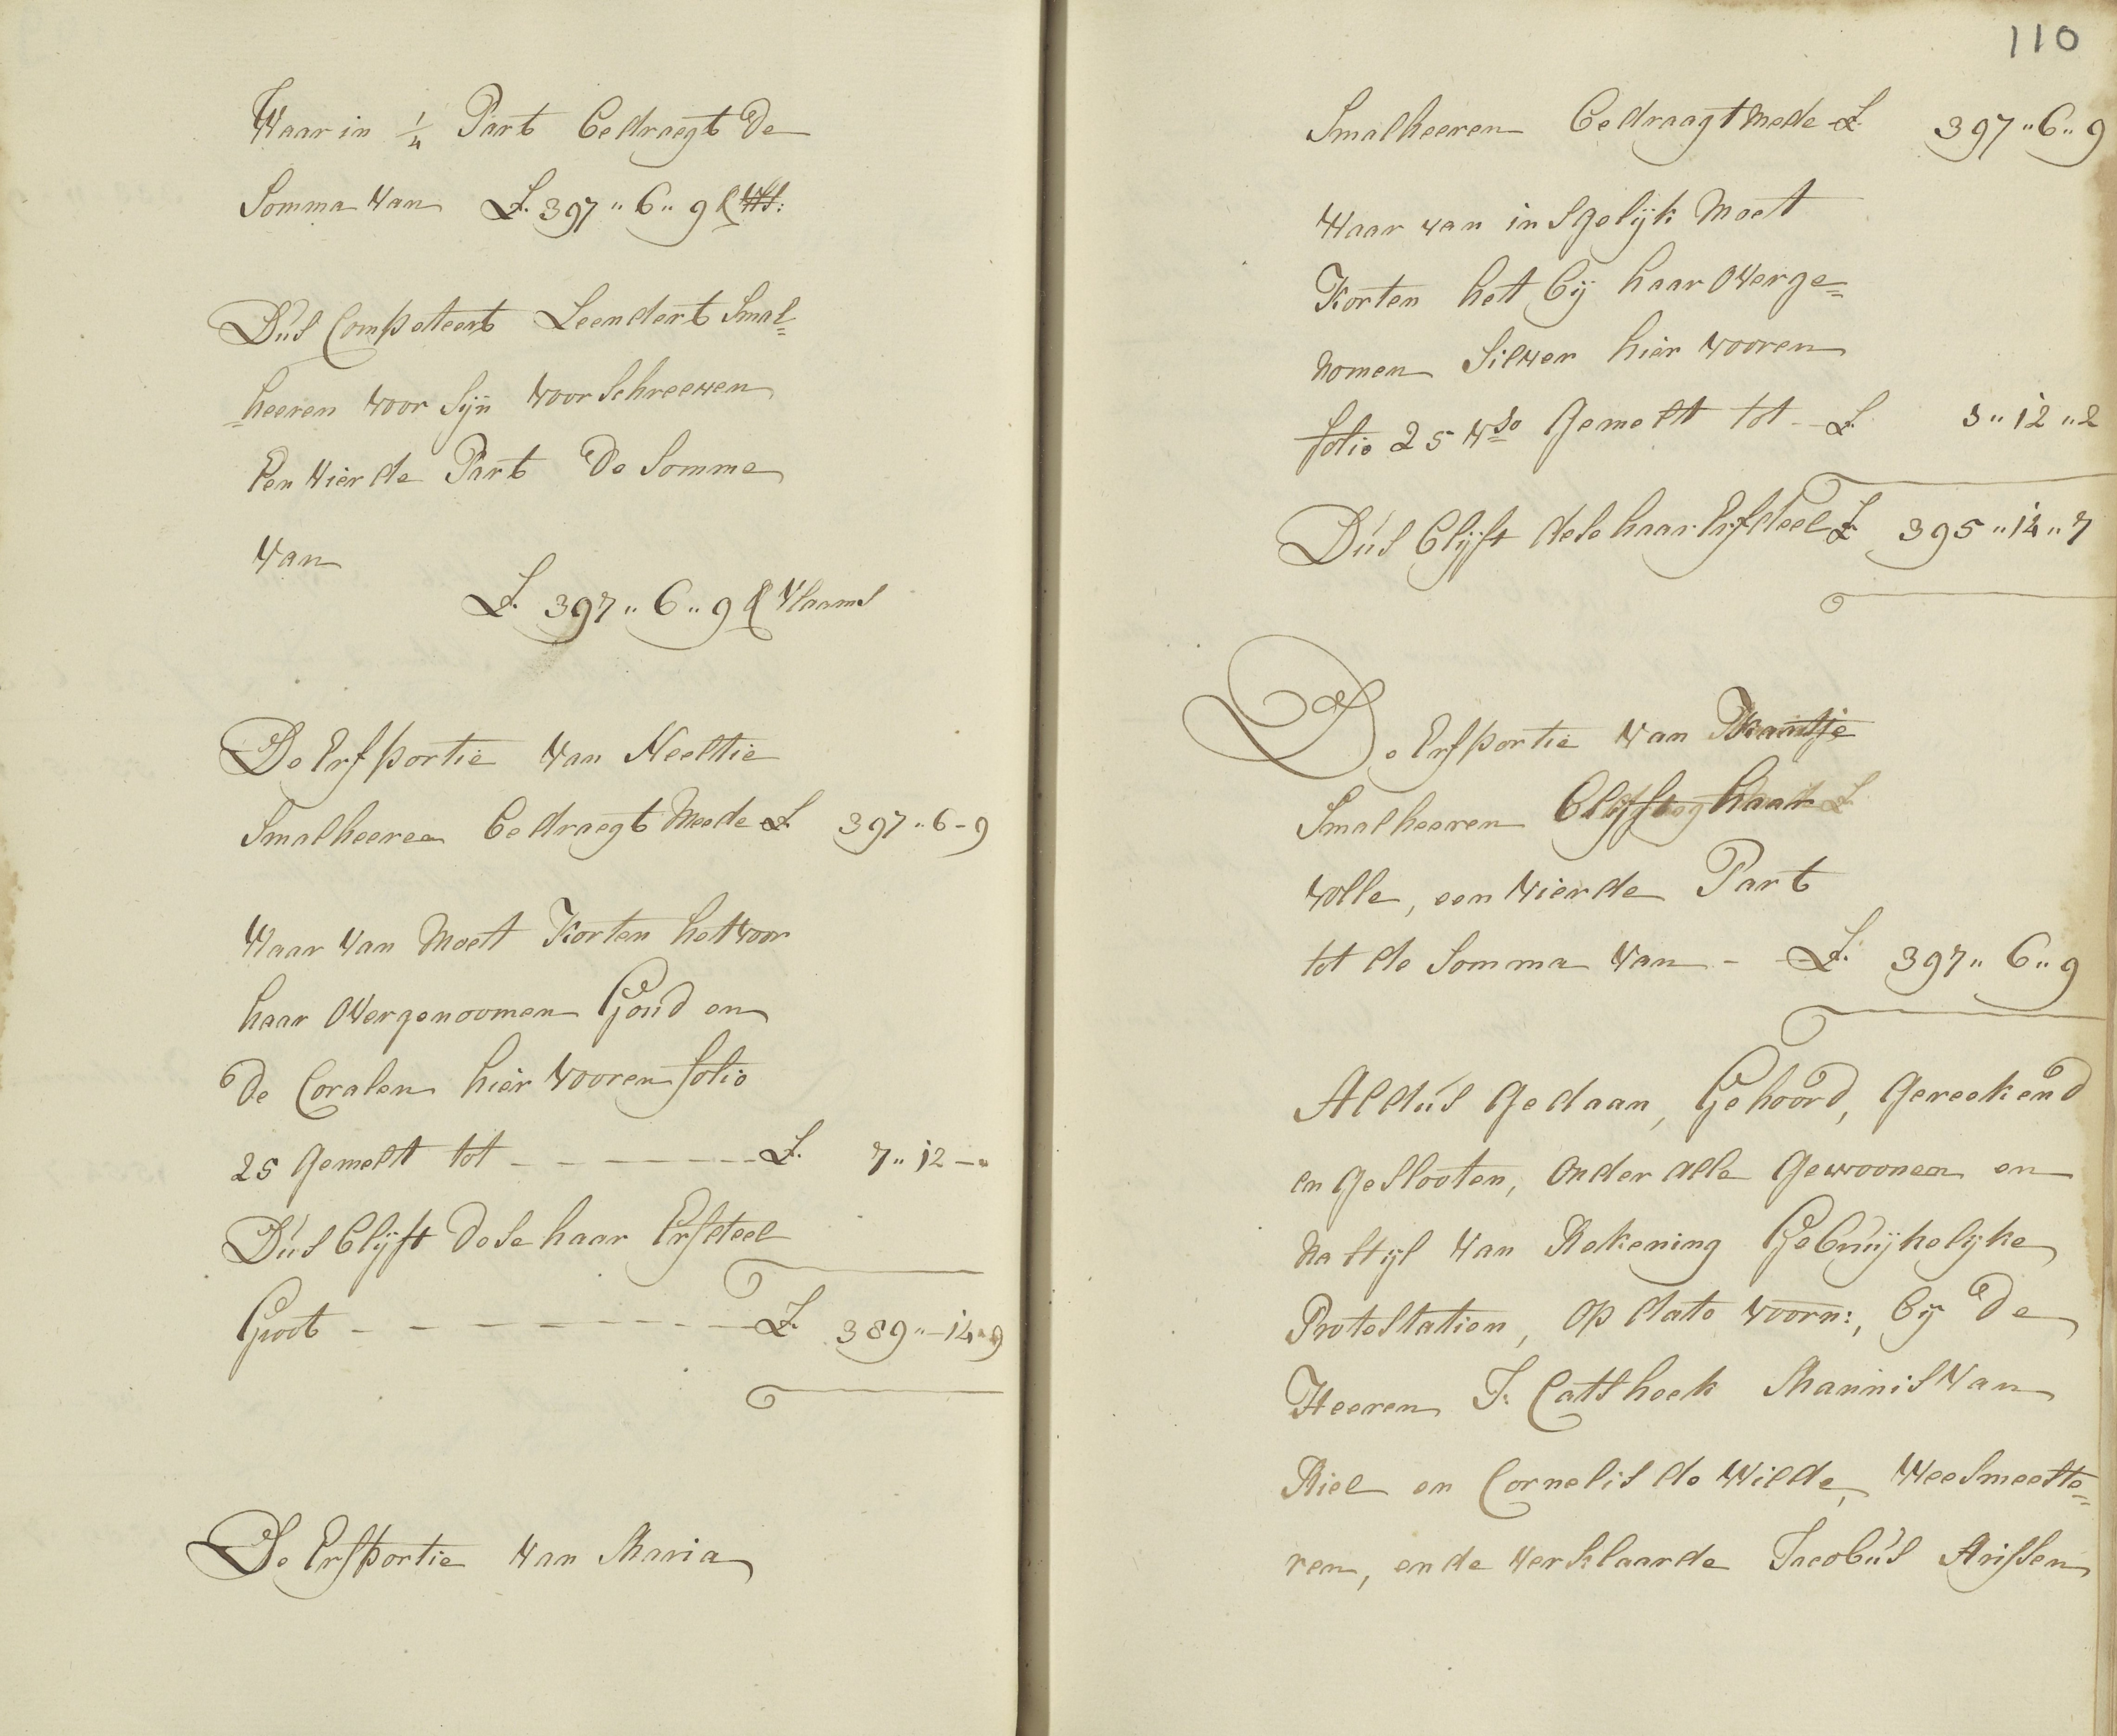 Waar in 1/4 Part bedraegt de
Somma van £ 397 „ 6 „ 9 & Vls:
Dús Competeert Leendert Smal=
=heeren voor Sijn voorschreeven
Een vierde Part de Somme
van
£ 397 „ 6 „ 9 & Vlaams
De Erfportie van Neeltie
Smalheeren bedraegt Mede £ 397 „ 6 - 9
Waar van Moett Korten het voor
haar overgenoomen Goud en
de Coralen hier vooren folio
25 Gemeltt tot - - - - - £ 7 „ 12 - „
Dús blijft dese haar Erfdeel
Groot - - - - - - - - £ 389 „ - 14 „ 9
De Erfportie van Maria
110
Smalheeren bedraagt Mede £ 397 „ 6 „ 9
Waar van insgelijk Moet
Korten het bij haar overge=
nomen Silver hier vooren
folio 25 vso Gemeltt tot - £ 3 „ 12 „ 2
Dús blijft dese haar Erfdeel £ 395 „ 14 „ 7
De Erfportie van
Smalheeren blijft haar
volle, een vierde Part
tot de Somma van - - £ 397 „ 6 „ 9
Aldús Gedaan, Gehoord, Gereekend
en Geslooten, onder alle Gewoonen en
na stijl van Rekening Gebruijkelijke
Protestatien, op dato voorn:, bij de
Heeren J. Catshoek Marinis van
Riel en Cornelis de Wilde, Weesmeeste=
ren, ende verklaarde Jacobús Arissen